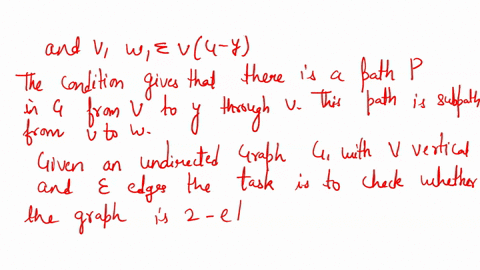 and V, w, ε v(G-y)
The condition gives that there is a path P
in G from V to y through v. This path is subpath
from v to w.
Given an undirected Graph G, with V vertical
and E edges the task is to check whether
the graph is 2-el